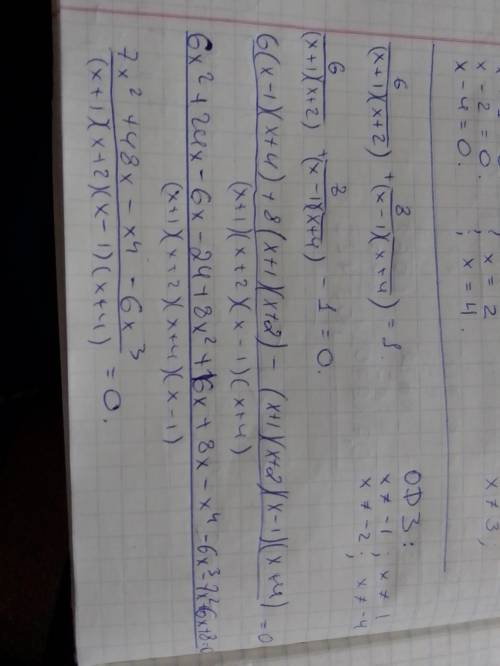 x - 2 = 0. ; x = 2
x - 4 = 0. ; x = 4.
x ≠ 3 ;
6/((x+1)(x+2)) + 8/((x-1)(x+4)) = 1.
ОДЗ:
x ≠ -1 ; x ≠ 1
x ≠ -2 ; x ≠ -4
6/((x+1)(x+2)) + 8/((x-1)(x+4)) - 1 = 0.
6(x-1)(x+4) + 8(x+1)(x+2) - (x+1)(x+2)(x-1)(x+4) = 0
(x+1)(x+2)(x-1)(x+4)
6x² + 24x - 6x - 24 + 8x² + 16x + 8x - x⁴ - 6x³ - 7x² + 6x + 8
(x+1)(x+2)(x+4)(x-1)
7x² + 48x - x⁴ - 6x³
(x+1)(x+2)(x-1)(x+4) = 0.